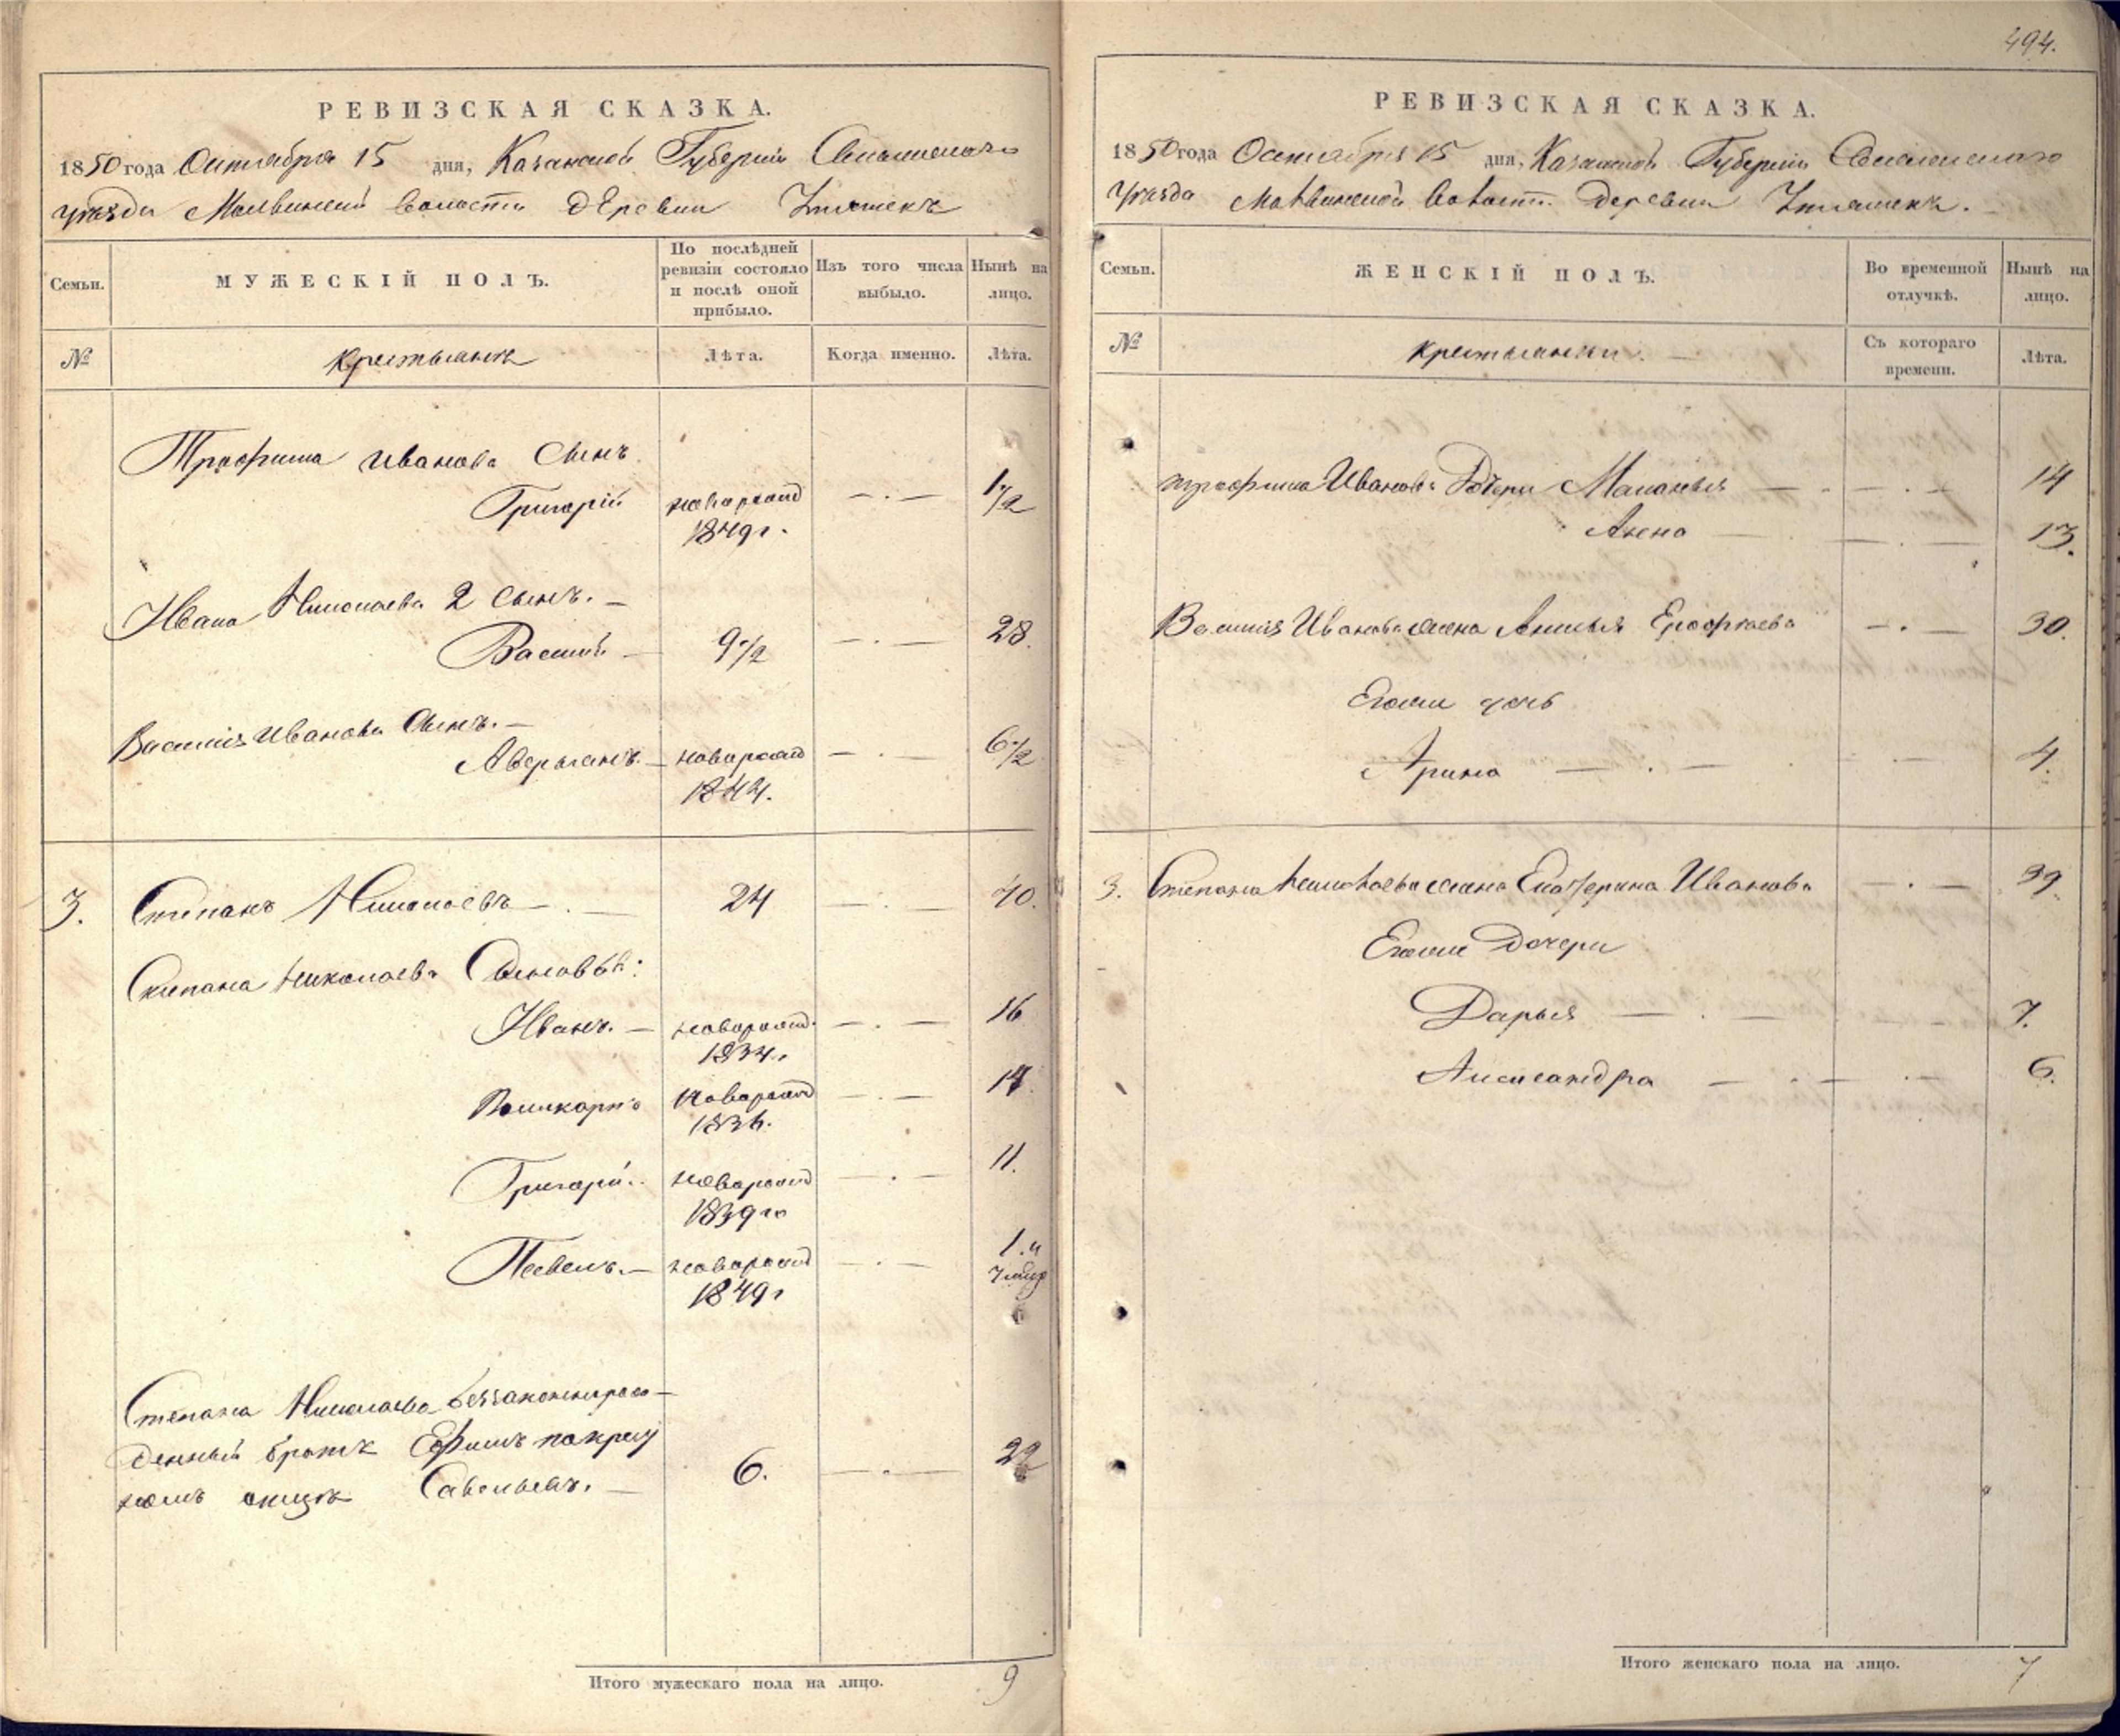 РЕВИЗСКАЯ СКАЗКА.
1850 года Октября 15 дня, Казанской Губернiи
уезда волости деревни
Семьи.
МУЖЕСКIЙ ПОЛЪ.
По послѣдней ревизiи состояло и послѣ оной прибыло.
Изъ того числа выбыло.
Нынѣ на лицо.
№
Крестьянъ
Лѣта.
Когда именно.
Лѣта.
Трофима Иванова Сынъ
Григорiй новорожд 1 1/2
1849 г.
Ивана Николаева 2 сынъ.
Василiй 9 1/2 28.
Василiя Иванова Сынъ.
Аверьянъ. новорожд 6 1/2
1844.
3. Степанъ Николаевъ 24 40.
Степана Николаева Сыновья:
Иванъ. новорожд. 16
1834.
Поликарпъ новорожд 14.
1836.
Григорiй новорожд 11.
1839 го
Павелъ. новорожд 1.
1849 г
Степана Николаева беззаконнорож-
денный братъ Ефимъ по крест
номъ отцѣ Савельевъ. 6. 22
Итого мужескаго пола на лицо. 9
494.
РЕВИЗСКАЯ СКАЗКА.
1850 года Октября 15 дня, Казанской Губернiи
Уезда волости деревни
Семьи.
ЖЕНСКIЙ ПОЛЪ.
Во временной отлучкѣ.
Нынѣ на лицо.
№
Крестьянки
Съ котораго времени.
Лѣта.
Трофима Иванова Дочери Маланья 14
13.
Василiя Иванова жена Ерофеева 30.
Егожи дочь
Арина 4.
3. Степана Николаева жена Екатерина Иванова 39.
Егожи Дочери
Дарья 7.
Александра 6.
Итого женскаго пола на лицо. 7